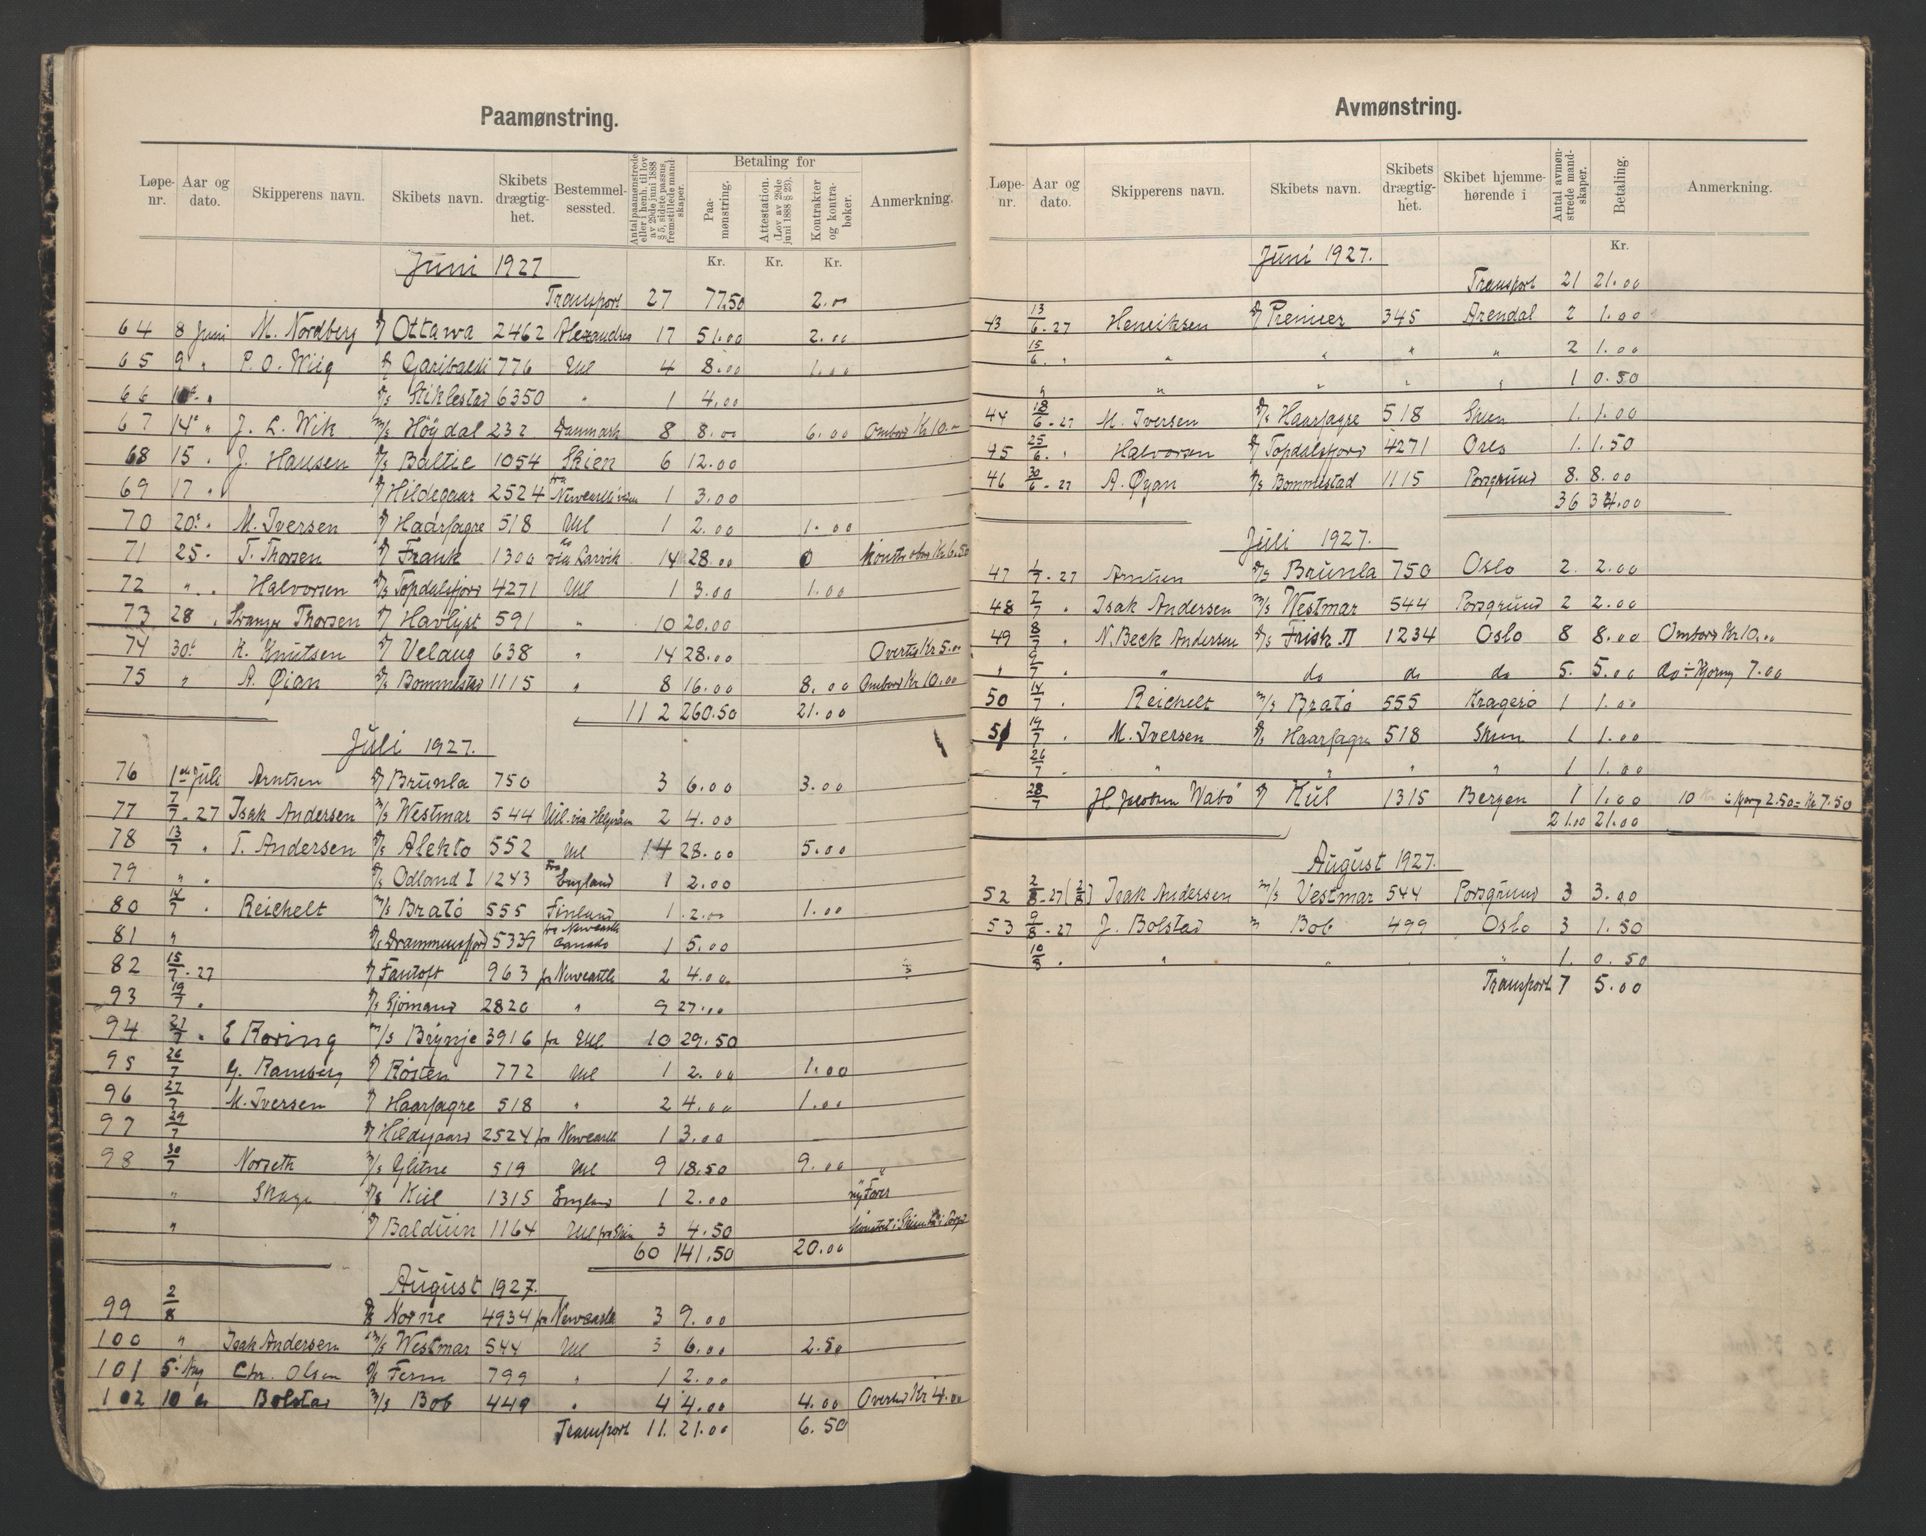 Paamønstring.
Løpe-nr. Aar og dato. Skipperens navn. Skibets navn. Skibets drægtig-het. Bestemmel-sessted. Antal paamønstrede eller i henh. til lov av 29de juni 1888 § 5, sidste passus, fremstillede mand-skaper. Betaling for Paa-mønstring. Attestation. (Lov av 29de juni 1888 § 23). Kontrakter og kontra-bøker. Anmerkning.
Kr. Kr. Kr.
Juni 1927
Transport 27 77.50 2.00
64 8 Juni M. Nordberg Ottawa 2462 17 51.00 2.00
65 9 " P. O. Wiig Garibaldi 776 Utl 4 8.00 1.00
66 " Stiklestad 6350 " 1 4.00
67 14 " J. L. Wik M/s Høydal 232 Danmark 8 8.00 6.00 Ombord Kr 10.-
68 15 . J. Hansen D/s Baltic 1054 Skien 6 12.00
69 17 " Hildegaar 2524 fra Newcastle 1 3.00
70 20 . M. Iversen Haarfagre 518 Utl 1 2.00 1.00
71 25 . T. Thorsen Frank 1300 via Larvik 14 28.00 0 Kr 6.50
72 " . Halvorsen D/s Topdalsfjord 4271 Utl 1 3.00 1.00
73 28 . Thorsen Havlyst 591 " 10 20.00
74 30 K. Knutsen Velaug 638 " 14 28.00 Overtid Kr 5.00
75 " A. Øian D/s Bommestad 1115 " 8 16.00 8.00 Ombord Kr 10.00
112 260.50 21.00
Juli 1927.
76 1 Juli Arntsen Brunla 750 3 6.00 3.00
77 7/7-27 Isak Andersen M/s Westmar 544 Utl. via 2 4.00
78 13/7 " T. Andersen D/s Alekto 552 Utl 14 28.00 5.00
79 " " D/s Odland I 1243 fra England 1 2.00
80 14/7 . Reichelt M/s Bratö 555 Finland 1 2.00 1.00
81 " D/s Drammensfjord 5339 fra Newcastle Canada 1 5.00
82 15/7-27 Fantoft 963 fra Newcastle 2 4.00
93 19/7 . D/s Sjömand 2820 " 9 27.00
94 27/7 . E Roring M/s Brynje 3916 fra Utl 10 29.50
95 26/7 G. Ramberg Rösten 772 Utl 1 2.00 1.00
96 27/7 M. Iversen Haarfagre 518 " 2 4.00 1.00
97 29/7 Hildegaard 2524 fra Newcastle 1 3.00
98 30/7 Norseth M/s Glitne 519 Utl 9 18.50 9.00
" Skage D/s Kiil 1315 England 1 2.00 ny Förer
" Balduin 1164 Utl fra Skien 3 4.50
60 141.50 20.00
August 1927.
99 2/8 D/s Norne 4934 fra Newcastle 3 9.00
100 " Isak Andersen M/s Westmar 544 Utl 3 6.00 2.50
101 5. Aug Chr. Olsen D/s Ferm 799 " 1 2.00
102 10 " Bolstad M/s Bob 449 " 4 4.00 4.00 Overtid Kr 4.00
Transport 11. 21.00 6.50
Avmønstring.
Løpe-nr. Aar og dato. Skipperens navn. Skibets navn. Skibets drægtig-het. Skibet hjemme-hørende i Antal avmøn-strede mand-skaper. Betaling. Anmerkning.
Kr.
Juni 1927.
Transport 21 21.00
43 13/6-27 Henriksen Premier 345 Arendal 2 1.00
15/6 . " " " " 2 1.00
" " " " " 1 0.50
44 18/6-27 M. Iversen D/s Haarfagre 518 Skien 1. 1.00
45 25/6 . Halvorsen Topdalsfjord 4271 Oslo 1. 1.50
46 30/6-27 A. Øyan D/s Bommestad 1115 Porsgrund 8. 8.00
36 34.00
Juli 1927.
47 1/7-27 Arntsen D/s Brunla 750 Oslo 2. 2.00
48 7/7 . Isak Andersen M/s Westmar 544 Porsgrund 2 2.00
49 8/7 . N. Beck Andersen D/s Frisk II 1234 Oslo 8 8.00 Ombord Kr 10.00
" 9/7 . " do do do 5. 5.00 do ÷ Kjøring 7.00
50 14/7 . Reichelt M/s Bratö 555 Kragerö 1 1.00
51 14/7 . M. Iversen D/s Haarfagre 518 Skien 1 1.00
26/7 . " " " " 1 1.00
28/7 Jacobsen Wabö Kiil 1315 Bergen 1 1.00 10 Kr ÷ Kjørg 2.50 = Kr 7.50
21.00 21.00
August 1927.
52 2/8-27 (3/8) Isak Andersen M/s Vestmar 544 Porsgrund 3 3.00
53 9/8-27 J. Bolstad " Bob 499 Oslo 3 1.50
10/8 . " " . " 1. 0.50
Transport 7 5.00